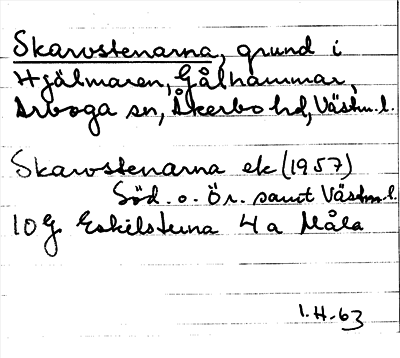 Skarvstenarna, grund i
Hjälmaren, Gålhammar,
Arboga sn, Åkerbo hd, Västm.l.
Skarvstenarna ek (1957)
Söd. o. Ör. samt Västm.l.
10 G Eskilstuna 4 a Måla
1.H.63